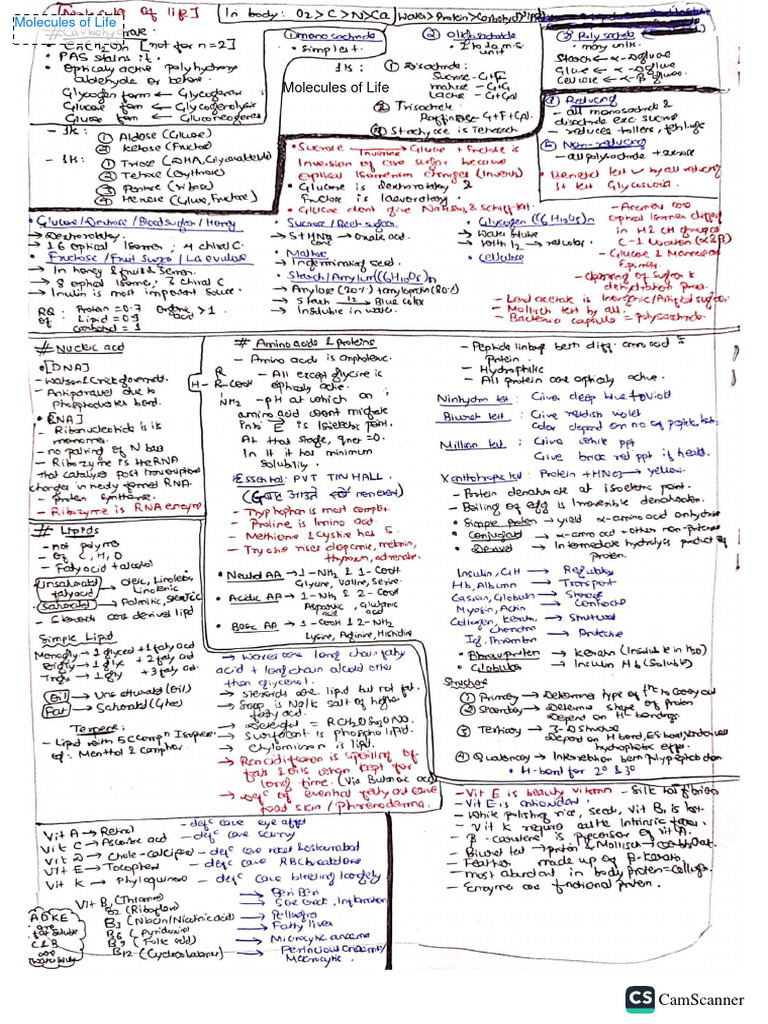 [Molecules of life]
Molecules of Life
In body: O2 > C > N > Ca
Water > Protein >
# Carbohydrate:
- Cn(H2O)n [not for n=2]
- PAS stains it.
• Optically active polyhydroxy
aldehyde or
Glycogen form ← Glycogenesis
Glucose form ← Glycogenolysis
Glucose ← Gluconeogenesis
① monosaccharide
• Simplest.
Molecules of Life
②
2 to
unit
① Disaccharide:
Sucrose - G+F
maltose - G+G
Lactose - G+Gal
② Trisaccharide:
Raffinose G+F+Gal.
③ Stachyose is Tetrasacch
③ Polysaccharide
- many units.
Starch ← α-D glucose
← α-D glucose
← β glucose.
① Reducing
- all monosaccharide &
disaccharide exc. sucrose
- reduces tollens, fehlings
② Non-reducing
- all polysaccharide + sucrose
• Benedict test ✓ by all reducing
① Aldose (Glucose)
② Ketose (Fructose)
① Triose (DHA, Glyceraldehyde)
② Tetrose (Erythrose)
③ Pentose (ribose)
④ Hexose (Gluc, Fructose)
• Sucrose → Glucose + Fructose is
Inversion of cane sugar because
optical isomerism changes (Invert)
• Glucose is dextrorotatory &
Fructose is laevorotatory.
• Glucose dont give NaHSO3 & schiff test.
• Glucose/Dextrose/Blood sugar/Honey
→ Dextrorotatory.
→ 16 optical isomer, 4 chiral C.
• Fructose/Fruit Sugar/Laevulose
→ In honey & fruit & Semen.
→ 8 optical isomer, 3 chiral C
→ Inulin is most important source.
RQ of: Protein = 0.7 Organic acid > 1
Lipid = 0.9
carbohyd = 1
• Sucrose/Beet sugar
→ S + HNO3 conc → Oxalic acid.
• Maltose
→ In germinating seed.
• Starch/Amylum (C6H10O5)n
→ Amylose (20%) + amylopectin (80%)
→ Starch I2→ Blue color
→ Insoluble in water.
• Glycogen (C6H10O5)n
→ Water soluble
→ With I2 → red color.
• Cellulose
- Anomers are
optical isomer differ
in H & OH group at
C-1 location (α & β)
- Glucose & Mannose are
Epimers.
- charring of sugar is
dehydration
- Mollisch test by all.
- Bacterial capsule = polysaccharide.
# Nucleic acid
• [DNA]
- Watson & Crick
- Antiparallel due to
Phosphodiester bond.
• [RNA]
- Ribonucleotide is its
monomer.
- no pairing of N bases
- Ribozyme is HeRNA
that catalyses post transcriptional
changes in newly formed RNA.
- protein synthesis.
- Ribozyme is RNA enzyme
# Amino acids & Proteins
- Amino acid is amphoteric.
R
H - R - COOH
NH2
- All except glycine is
optically active.
- pH at which an
amino acid wont migrate
in E is isoelectric point.
At that stage, qnet = 0.
In it it has minimum
solubility.
• Essential: PVT TIN HALL.
- Tryptophan is most complex.
- Proline is Imino acid.
- Methione & Cystine has S.
• Neutral AA → 1-NH2 & 1-COOH
Glycine, Valine, Serine.
• Acidic AA → 1-NH2 & 2-COOH
Aspartic acid, Glutamic acid
• Basic AA → 1-COOH 12-NH2
Lysine, Arginine, Histidine
- Peptide linkage betn diff. amino acid =
Protein.
- Hydrophilic
- All protein are optically active.
Ninhydrin test: Give deep blue to Violet
Biuret test: Give reddish violet
color depend on no of peptide
Millian test: Give white ppt
Give brick red ppt if heated.
Xanthoproteic test: Protein + HNO3 → yellow.
- Protein denaturate at isoelectric point.
- Boiling of egg is Irreversible denaturation.
• Simple protein → yield α-amino acid on hydrolysis
• Conjugated → α-amino acid + other non-protein
• Derived → Intermediate hydrolysis product of
protein.
Insulin, GH → Regulatory
Hb, Albumin → Transport
Casein, Globulin → Storage
Myosin, Actin → Contractile
Collagen, Keratin, → Structural
Ig, Thrombin → Protective
• Fibrous protein → Keratin (Insoluble in H2O)
• Globular → Insulin Hb (Soluble)
Structure
① Primary →
② Secondary → Determine shape of protein
Depend on H bonding.
③ Tertiary → 3-D structure
④ Quaternary → Interaction betn polypeptide chain
• H-bond for 2° & 3°
# Lipids
- not polymer
- of C, H, O
- Fatty acid + alcohol
Unsaturated fatty acid → Oleic, Linoleic, Linolenic
Saturated → Palmitic, Stearic
- Steroids are derived lipid
Simple Lipid
Monogly → 1 glycerol + 1 fatty acid
Trigly → 1 gly + 3 fatty acid.
Oil → Unsaturated (Oil)
Fat → Saturated (Ghee)
Terpene:
- Lipid with 5C compn Isoprene.
eg: Menthol & camphor.
→ Waxes are long chain fatty
acid + long chain alcohol other
than glycerol.
→ Steroids are lipid but not fat.
→ Soap is Na/K salt of higher
fatty acid.
→ Surfactant is phospholipid.
→ Chylomicron is lipid.
→ Rancidification is spoiling of
fats & oils when kept for
long time. (Via Butanoic acid)
→ defc of essential fatty acid cause
toad skin / Phrenoderma.
- Vit E is beauty vitamin
- Vit E is antioxidant
- While polishing rice, seed, Vit B1 is lost.
- β-carotene is precursor of vit A.
- Biuret test → protein & Mollisch → carbohydrate.
- Feather made up of β-keratin.
- most abundant in body protein = collagen.
- Enzyme are functional protein.
Vit A → Retinol - defc cause eye affect
Vit C → Ascorbic acid - defc cause scurvy
Vit D → Chole-calciferol - defc cause ricket & osteomalacia
Vit E → Tocopherol - defc cause RBC fragile
Vit K → Phylloquinone - defc cause bleeding
Vit B1 (Thiamine) → Beri Beri
B2 (Riboflavin) → Sore throat, Inflammation
B3 (Niacin/Nicotinic acid) → Pellagra
B6 (Pyridoxine) → Fatty liver
B9 (Folic acid) → Microcytic anaemia
B12 (Cyanocobalamin) → Pernicious anaemia/
Macrocytic.
ADKE are fat soluble
C & B are water soluble
CS CamScanner